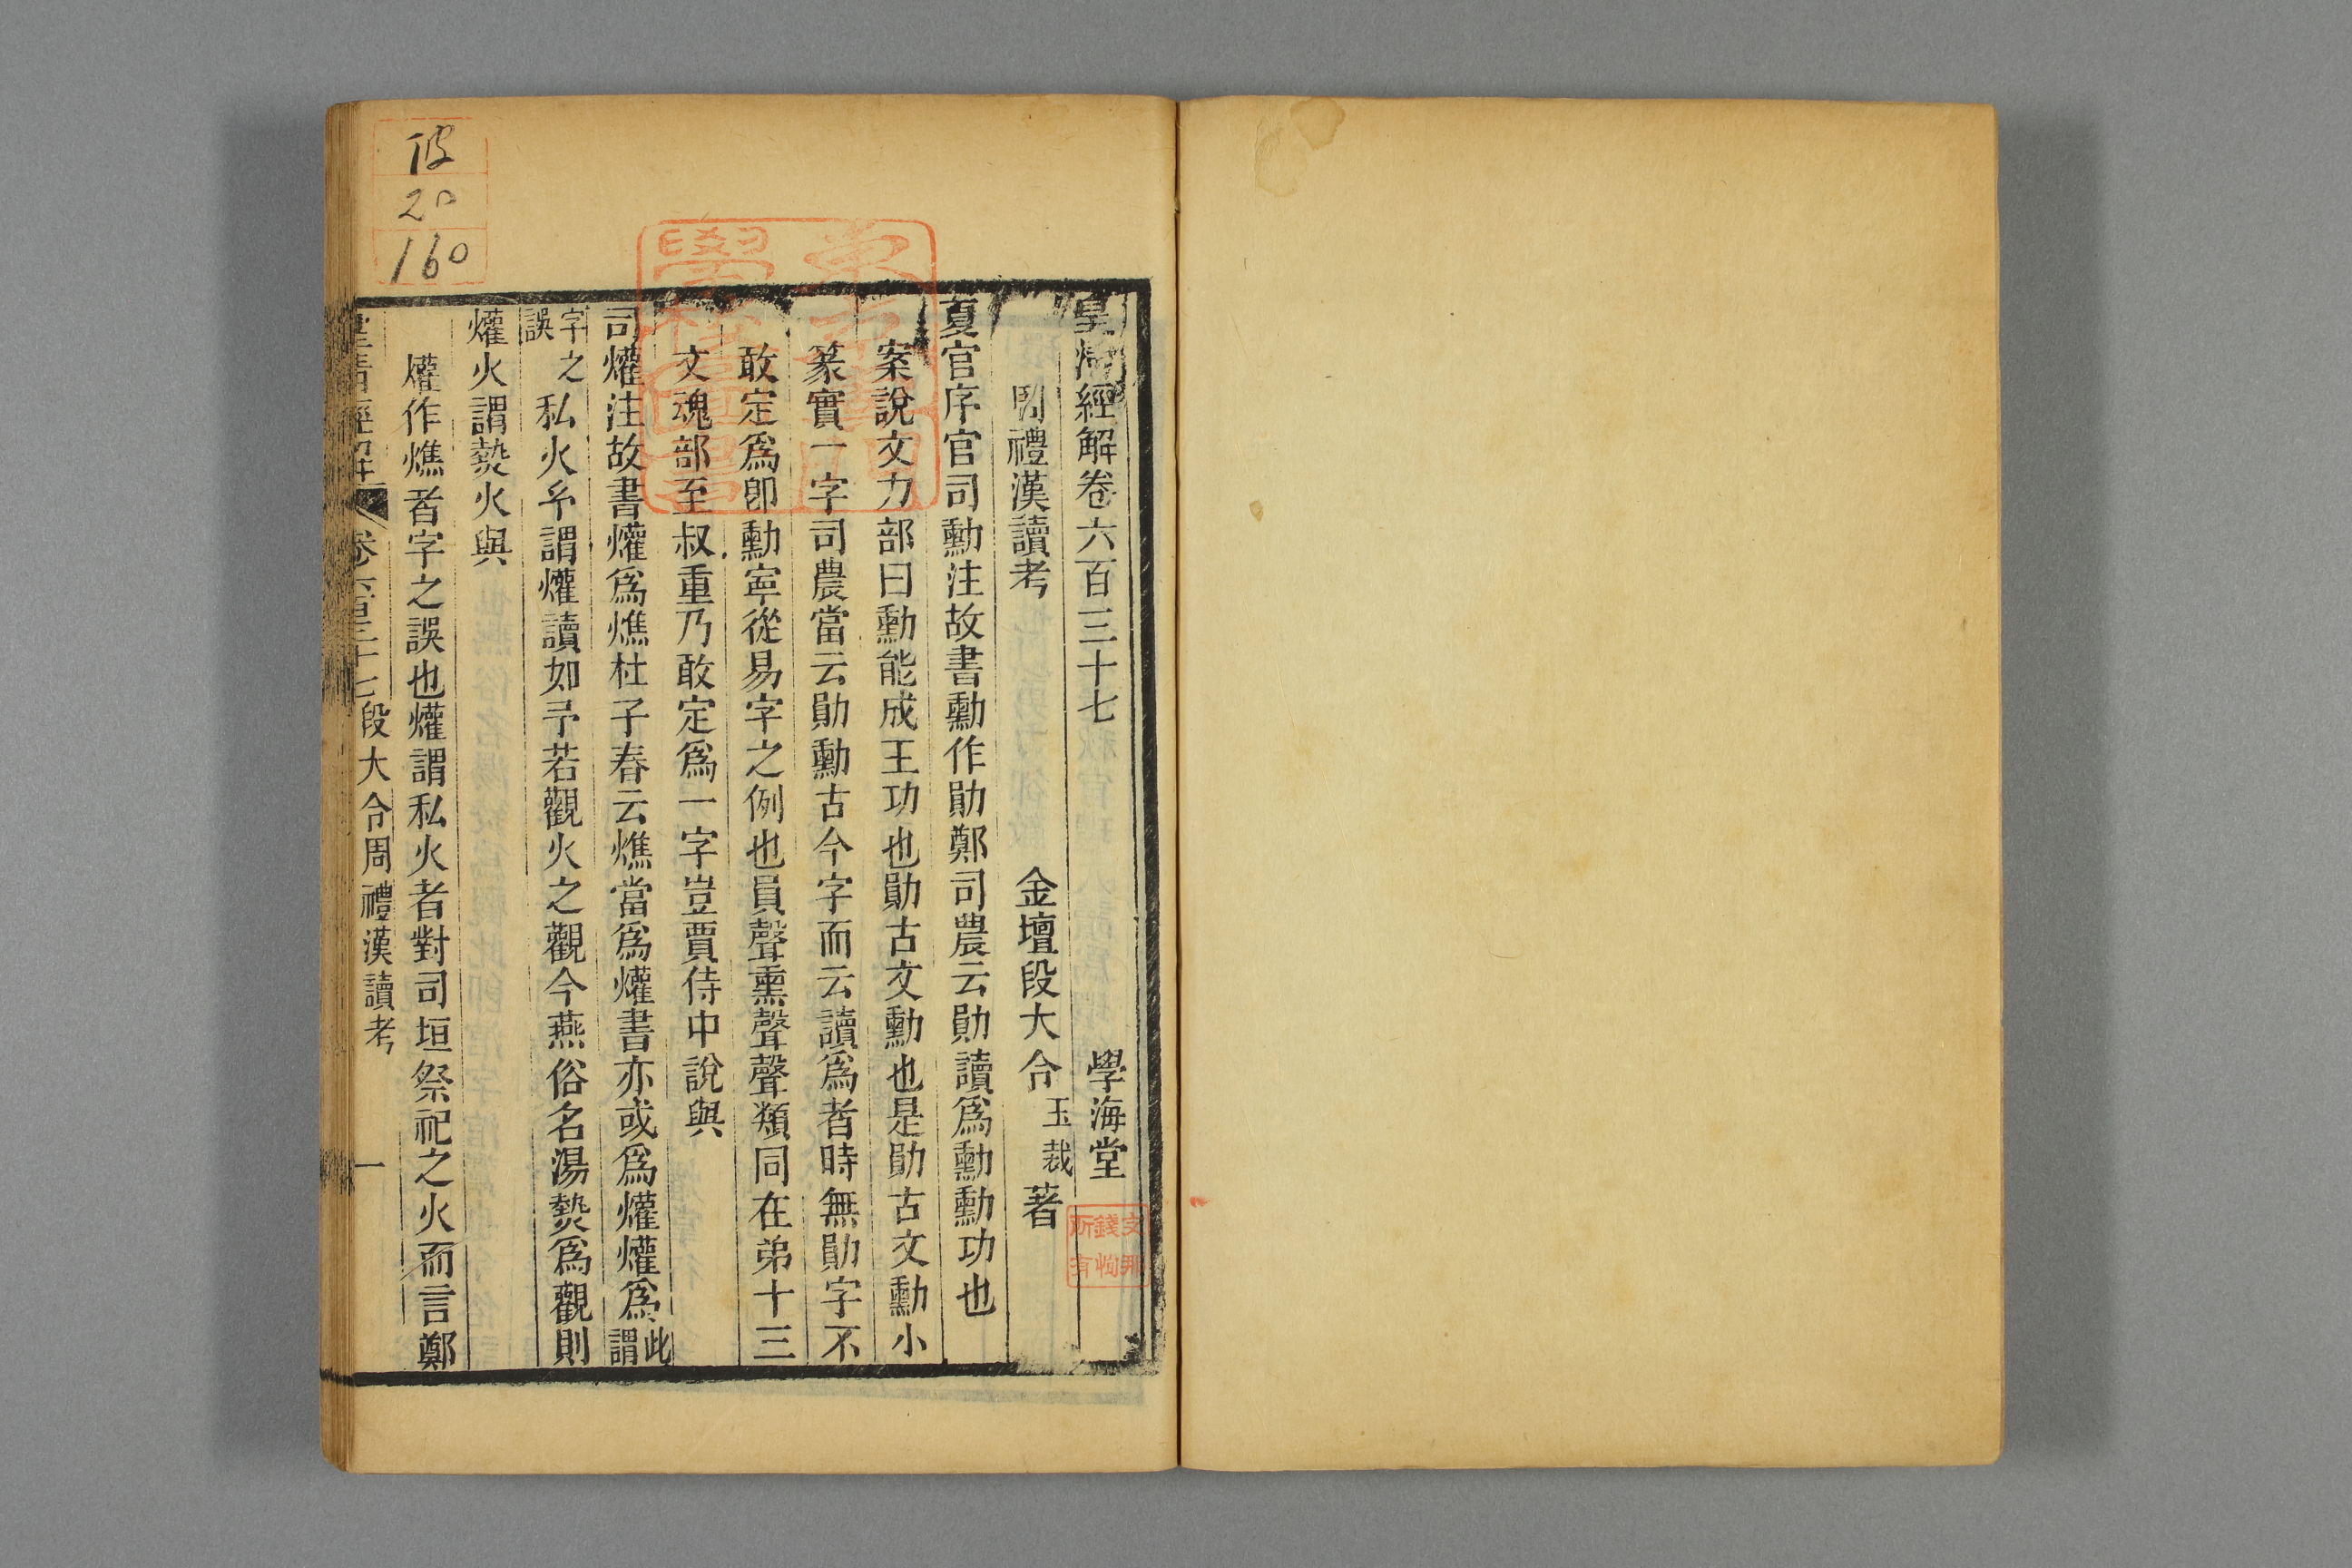 皇清經解卷六百三十七
學海堂
周禮漢讀考
金壇段大令玉裁著
夏官序官司勳注故書勳作勛鄭司農云勛讀爲勳勳功也
案說文力部曰勳能成王功也勛古文勳也是勛古文勳小
篆實一字司農當云勛勳古今字而云讀爲者時無勛字不
敢定爲卽勳寧從易字之例也員聲熏聲聲類同在弟十三
文魂部至叔重乃敢定爲一字豈賈侍中說與
司爟注故書爟爲燋杜子春云燋當爲爟書亦或爲爟爟爲此謂
字之誤私火予謂爟讀如予若觀火之觀今燕俗名湯熱爲觀則
爟火謂熱火與
爟作燋者字之誤也爟謂私火者對司垣祭祀之火而言鄭
皇清經解
卷六百三十七
段大令周禮漢讀考
一
20
160